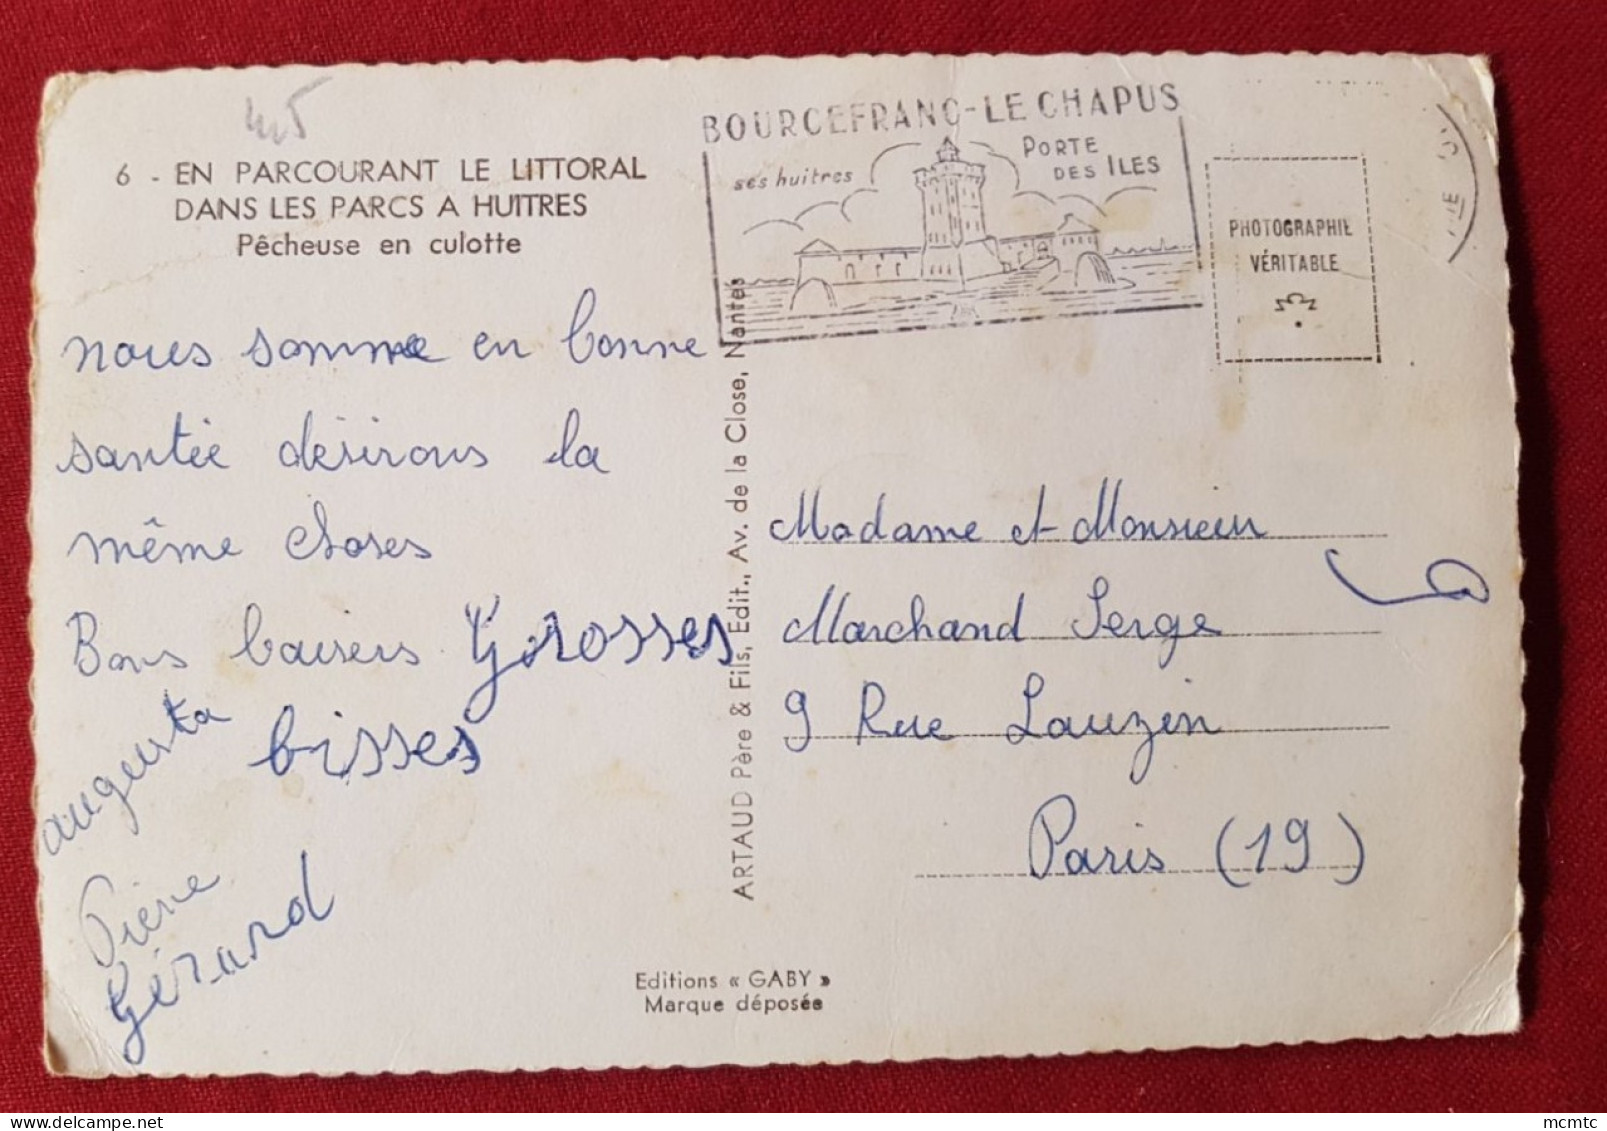 405
6 - EN PARCOURANT LE LITTORAL
DANS LES PARCS A HUITRES
Pêcheuse en culotte
nous somme en bonne
santée désirons la
même choses
Bons baisers Grosses
bisses
augusta
Pierre
Gérard
BOURCEFRANC-LE CHAPUS
ses huitres
PORTE
DES ILES
PHOTOGRAPHIE
VÉRITABLE
ARTAUD Père & Fils, Edit., Av. de la Close, Nantes
Madame et Monsieur
Marchand Serge
9 Rue Lauzin
Paris (19)
Editions « GABY »
Marque déposée
mcmtc
delcampe.net